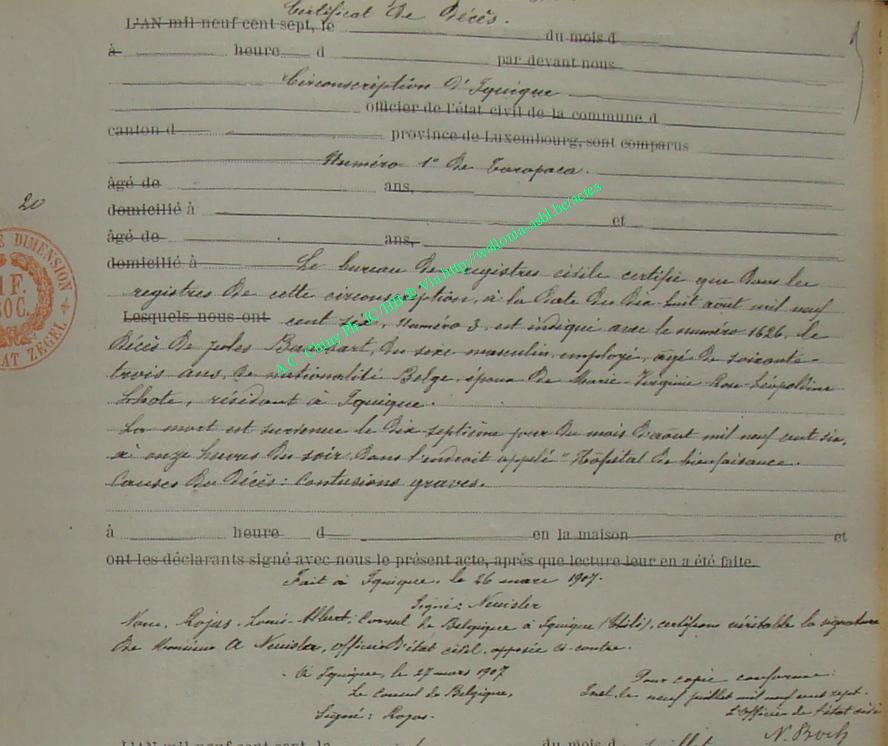 Certificat de Décès.
L'AN mil neuf cent sept, le du mois d
à heure d par devant nous
Circonscription d'Iquique
officier de l'état civil de la commune d
canton d province de Luxembourg, sont comparus
Numéro 1° de Tarapaca.
âgé de ans,
domicilié à et
âgé de ans,
20
domicilié à Le bureau de registres civils certifie que dans les
registres de cette circonscription, à la date du dix huit août mil neuf
Lesquels nous ont cent six, numéro 3, est indiqué avec le numéro 1626, le
décès de Jules, du sexe masculin, employé, âgé de soixante-
trois ans, de nationalité Belge, époux de Marie-Virginie-Rose-Léopoldine
Lhote, résidant à Iquique.
La mort est survenue le dix septième jour du mois d'août mil neuf cent six,
à onze heures du soir, dans l'endroit appelé "Hôpital de bienfaisance.
Causes du décès: Contusions graves.
à heure d en la maison et
ont les déclarants signé avec nous le présent acte, après que lecture leur en a été faite.
Fait à Iquique, le 26 mars 1907.
Signé: Neuisler
Nous, Rojas, Louis-Albert, Consul de Belgique à Iquique (Chili), certifions véritable la signature
de Monsieur A Neuisler, officier d'état civil, apposée ci-contre.
à Iquique, le 27 mars 1907
Le Consul de Belgique,
Signé: Rojas.
Pour copie conforme:
Izel, le neuf juillet mil neuf cent sept.
L'Officier de l'état civil
N. Boch
L'AN mil neuf cent sept, le du mois d juillet
DIMENSION
1 F.
ZEGEL
A.C. Chiny Ph. JC/Inh & Via http://wallonia-asbl.be/actes